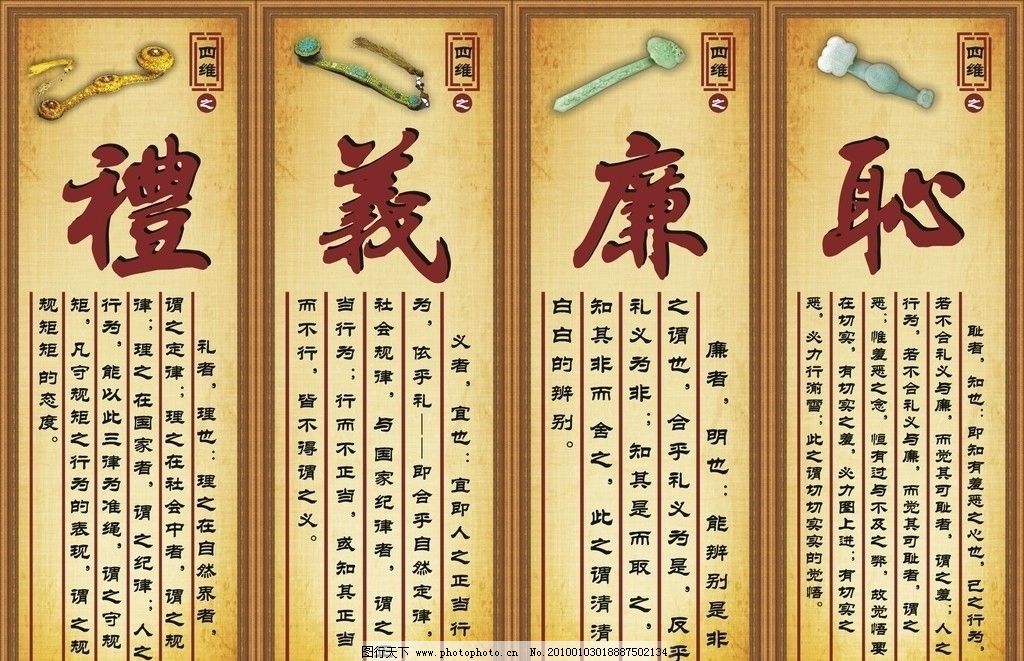 四维
之
禮
礼者，理也：理之在自然界者，
谓之定律；理之在社会中者，谓之规
律；理之在国家者，谓之纪律；人之
行为，能以此三律为准绳，谓之守规
矩，凡守规矩之行为的表现，谓之规
规矩矩的态度。
四维
之
義
义者，宜也：宜即人之正当行
为，依乎礼——即合乎自然定律，
社会规律，与国家纪律者，谓之
当行为；行而不正当，或知其正当
而不行，皆不得谓之义。
四维
之
廉
廉者，明也：能辨别是非
之谓也，合乎礼义为是，反乎
礼义为非；知其是而取之，
知其非而舍之，此之谓清清
白白的辨别。
四维
之
恥
耻者，知也：即知有羞恶之心也，己之行为，
若不合礼义与廉，而觉其可耻者，谓之羞；人之
行为，若不合礼义与廉，而觉其可耻者，谓之
恶；惟羞恶之念，恒有过与不及之弊，故觉悟果
在切实，有切实之羞，必力图上进；有切实之
恶，必力行湔雪；此之谓切切实实的觉悟。
图行天下 www.photophoto.cn No.20100103018887502134